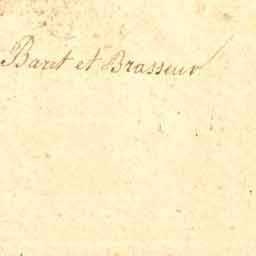 Baret et Brasseur